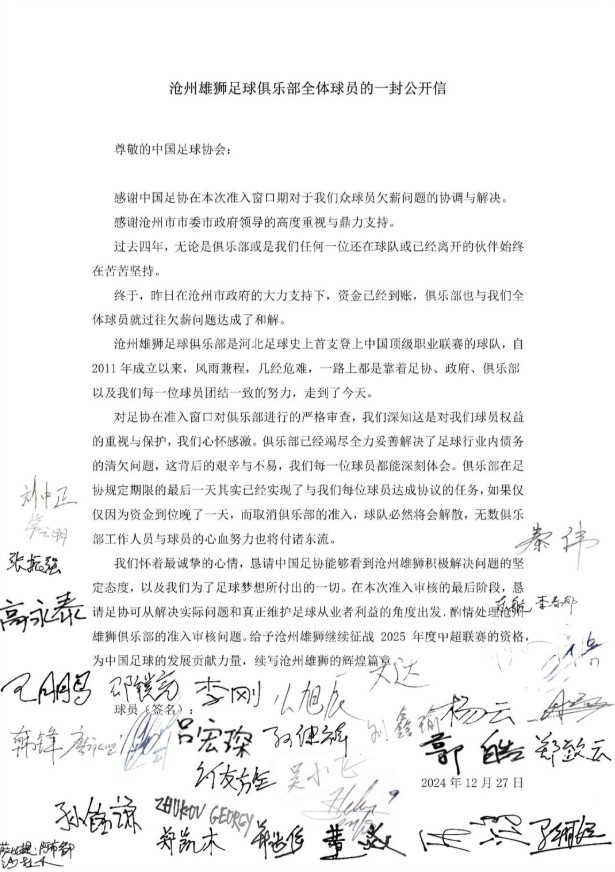 沧州雄狮足球俱乐部全体球员的一封公开信
尊敬的中国足球协会：
感谢中国足协在本次准入窗口期对于我们众球员欠薪问题的协调与解决。
感谢沧州市市委市政府领导的高度重视与鼎力支持。
过去四年，无论是俱乐部或是我们任何一位还在球队或已经离开的伙伴始终
在苦苦坚持。
终于，昨日在沧州市政府的大力支持下，资金已经到账，俱乐部也与我们全
体球员就过往欠薪问题达成了和解。
沧州雄狮足球俱乐部是河北足球史上首支登上中国顶级职业联赛的球队，自
2011 年成立以来，风雨兼程，几经危难，一路上都是靠着足协、政府、俱乐部
以及我们每一位球员团结一致的努力，走到了今天。
对足协在准入窗口对俱乐部进行的严格审查，我们深知这是对我们球员权益
的重视与保护，我们心怀感激。俱乐部已经竭尽全力妥善解决了足球行业内债务
的清欠问题，这背后的艰辛与不易，我们每一位球员都能深刻体会。俱乐部在足
协规定期限的最后一天其实已经实现了与我们每位球员达成协议的任务，如果仅
仅因为资金到位晚了一天，而取消俱乐部的准入，球队必然将会解散，无数俱乐
部工作人员与球员的心血努力也将付诸东流。
我们怀着最诚挚的心情，恳请中国足协能够看到沧州雄狮积极解决问题的坚
定态度，以及我们为了足球梦想所付出的一切。在本次准入审核的最后阶段，恳
请足协可从解决实际问题和真正维护足球从业者利益的角度出发，酌情处理沧州
雄狮俱乐部的准入审核问题。给予沧州雄狮继续征战 2025 年度中超联赛的资格，
为中国足球的发展贡献力量，续写沧州雄狮的辉煌篇章。
球员（签名）：
刘中正
张振强
秦伟
高永泰
李刚
杨云
韩锋
吕宏琛
刘鑫瑜
郭皓
郑致云
吴小飞
2024 年 12 月 27 日
孙铭谦
ZHUKOV GEORGY
郑凯木